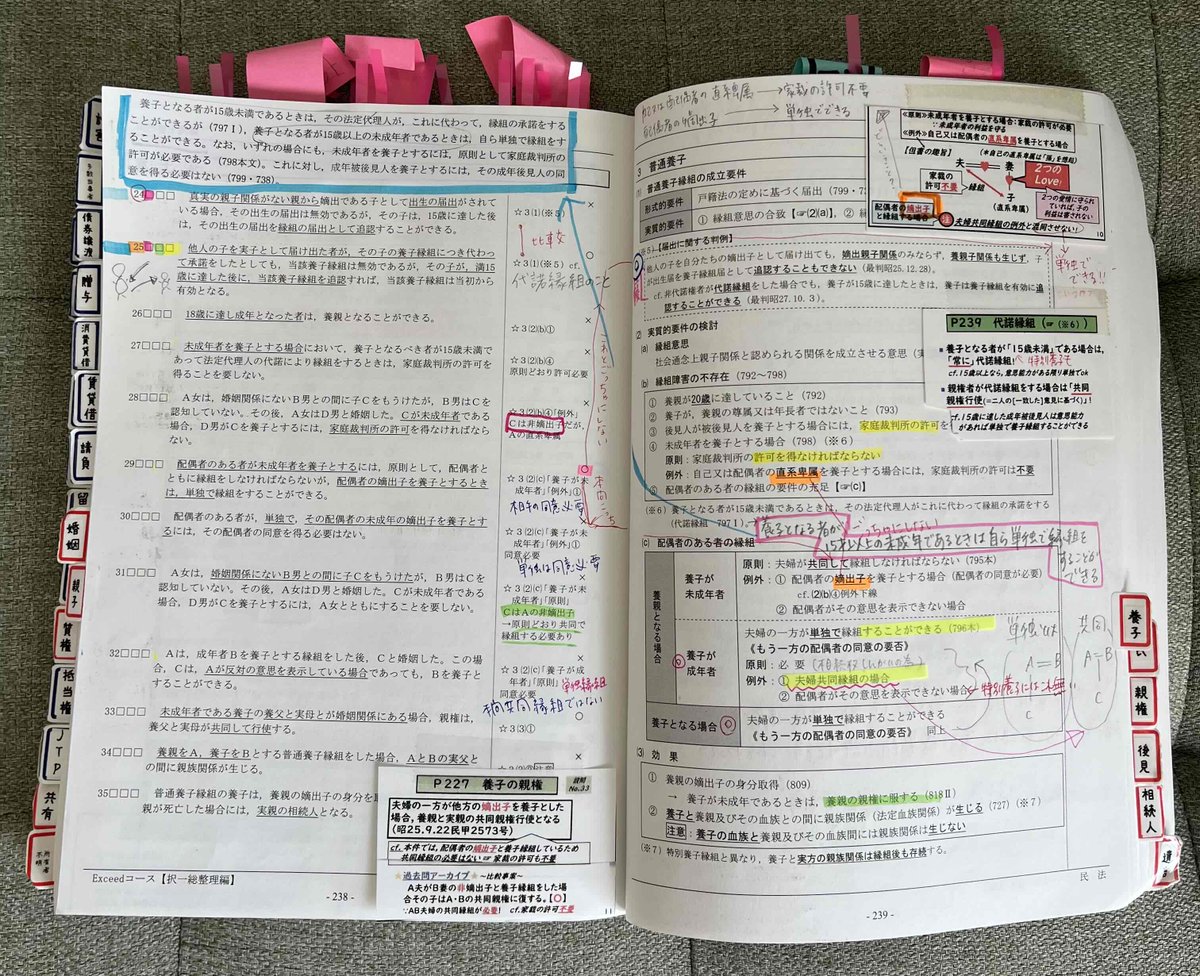 養子となる者が15歳未満であるときは，その法定代理人が，これに代わって，縁組の承諾をする
ことができるが（797Ⅰ），養子となる者が15歳以上の未成年者であるときは，自ら単独で縁組をす
ることができる。なお，いずれの場合にも，未成年者を養子とするには，原則として家庭裁判所の
許可が必要である（798本文）。これに対し，成年被後見人を養子とするには，その成年後見人の同
意を得る必要はない（799・738）。
24□□□ 真実の親子関係がない親から嫡出である子として出生の届出がされて
いる場合，その出生の届出は無効であるが，その子は，15歳に達した後
は，その出生の届出を縁組の届出として追認することができる。
×
☆3(1)(※5)
比較
25□□□ 他人の子を実子として届け出た者が，その子の養子縁組につき代わっ
て承諾をしたとしても，当該養子縁組は無効であるが，その子が，満15
歳に達した後に，当該養子縁組を追認すれば，当該養子縁組は当初から
有効となる。
○
☆3(1)(※5) cf.
代諾縁組のこと
26□□□ 18歳に達し成年となった者は，養親となることができる。
×
☆3(2)(b)①
27□□□ 未成年者を養子とする場合において，養子となるべき者が15歳未満で
あって法定代理人の代諾により縁組をするときは，家庭裁判所の許可を
得ることを要しない。
×
☆3(2)(b)④
原則どおり許可必要
28□□□ A女は，婚姻関係にないB男との間に子Cをもうけたが，B男はCを
認知していない。その後，A女はD男と婚姻した。Cが未成年者である
場合，D男がCを養子とするには，家庭裁判所の許可を得なければなら
ない。
×
☆3(2)(b)④「例外」
Cは非嫡出子だが，
Aの直系卑属
29□□□ 配偶者のある者が未成年者を養子とするには，原則として，配偶者と
ともに縁組をしなければならないが，配偶者の嫡出子を養子とするとき
は，単独で縁組をすることができる。
○
☆3(2)(c)「養子が未
成年者」「例外」①
相手の同意必要
30□□□ 配偶者のある者が，単独で，その配偶者の未成年の嫡出子を養子とす
るには，その配偶者の同意を得る必要はない。
×
☆3(2)(c)「養子が未
成年者」「例外」①
同意必要
単独は同意必要
31□□□ A女は，婚姻関係にないB男との間に子Cをもうけたが，B男はCを
認知していない。その後，A女はD男と婚姻した。Cが未成年者である場
合，D男がCを養子とするには，A女とともにすることを要しない。
×
☆3(2)(c)「養子が未
成年者」「原則」
CはAの非嫡出子
→原則どおり共同で
縁組する必要あり
32□□□ Aは，成年者Bを養子とする縁組をした後，Cと婚姻した。この場
合，Cは，Aが反対の意思を表示している場合であっても，Bを養子と
することができる。
×
☆3(2)(c)「養子が成
年者」「原則」
同意必要
単独縁組
共同縁組ではない
33□□□ 未成年者である養子の養父と実母とが婚姻関係にある場合，親権は，
養父と実母が共同して行使する。
○
☆3(3)①
34□□□ 養親をA，養子をBとする普通養子縁組をした場合，AとBの実父と
の間に親族関係が生じる。
×
35□□□ 普通養子縁組の養子は，養親の嫡出子の身分を
親が死亡した場合には，実親の相続人である。
P227 養子の親権
資料
No.33
夫婦の一方が他方の嫡出子を養子とした
場合，養親と実親の共同親権行使となる
（昭25.9.22民甲2573号）
cf.本件では，配偶者の嫡出子と養子縁組しているため
共同縁組の必要はない☞家裁の許可も不要
★過去問アーカイブ★～比較事案～
A夫がB妻の非嫡出子と養子縁組をした場
合その子はA・Bの共同親権に復する。【○】
∵AB夫婦の共同縁組が必要！ cf.家裁の許可不要
11
Exceedコース【択一総整理編】
- 238 -
債券譲渡
贈与
消費貸借
賃貸借
請負
留
婚姻
親子
質権
抵当権
JTP
共有
所有者不明
の直系卑属→家裁の許可不要
配偶者の嫡出子→単独でできる
≪原則≫未成年者を養子とする場合：家裁の許可が必要
∵未成年者の利益を守る
≪例外≫自己又は配偶者の直系卑属を養子とする場合
【但書の趣旨】
（＊自己の直系卑属は「孫」を想起）
夫
妻
2つの
Love!
家裁の
許可不要
縁組
子
（直系卑属）
2つの愛情に守られ
ていれば，子の
利益は害されない
配偶者の嫡出子
と縁組する場合
注 夫婦共同縁組の例外と混同させない！
10
3 普通養子
(1) 普通養子縁組の成立要件
形式的要件 戸籍法の定めに基づく届出（799・
実質的要件 ① 縁組意思の合致【☞(2)(a)】，②
単独で
できる!!
(※5)【届出に関する判例】
他人の子を自分たちの嫡出子として届け出ても，嫡出親子関係のみならず，養親子関係も生じず，子
が出生届を養子縁組届として追認することもできない（最判昭25.12.28）。
cf.非代諾権者が代諾縁組をした場合でも，養子が15歳に達したときは，養子は養子縁組を有効に追
認することができる（最判昭27.10.3）。
(2) 実質的要件の検討
(a) 縁組意思
社会通念上親子関係と認められる関係を成立させる意思（実
(b) 縁組障害の不存在（792～798）
① 養親が20歳に達していること（792）
② 養子が，養親の尊属又は年長者ではないこと（793）
③ 後見人が被後見人を養子とする場合には，家庭裁判所の許可を
④ 未成年者を養子とする場合（798）（※6）
原則：家庭裁判所の許可を得なければならない
例外：自己又は配偶者の直系卑属を養子とする場合には，家庭裁判所の許可は不要
⑤ 配偶者のある者の縁組の要件の充足【☞(c)】
P239 代諾縁組（☞(※6)）
■ 養子となる者が「15歳未満」である場合は，
「常に」代諾縁組！
特別養子も
cf.15歳以上なら，意思能力がある限り単独でok
■ 親権者が代諾縁組をする場合は「共同
親権行使（＝二人の「一致した」意思に基づく）」！
cf.15歳に達した成年被後見人は意思能力
があれば単独で養子縁組することができる
(※6) 養子となる者が15歳未満であるときは，その法定代理人がこれに代わって縁組の承諾をする
（代諾縁組・797Ⅰ）。
ごっちゃにしない
養子となる者が
15才以上の未成年であるときは自ら単独で縁組を
することが
できる
(c) 配偶者のある者の縁組
養親となる場合
養子が
未成年者
原則：夫婦が共同して縁組しなければならない（795本）
例外：① 配偶者の嫡出子を養子とする場合（配偶者の同意が必要）
cf.(2)(b)④例外下線
② 配偶者がその意思を表示できない場合
養子が
成年者
夫婦の一方が単独で縁組することができる（796本）
《もう一方の配偶者の同意の要否》
原則：必要
例外：① 夫婦共同縁組の場合
② 配偶者がその意思を表示できない場合
特別養子にはこれ無
共同
A＝B
C
A＝B
C
養子となる場合
夫婦の一方が単独で縁組することができる
《もう一方の配偶者の同意の要否》 同上
(3) 効果
① 養親の嫡出子の身分取得（809）
→ 養子が未成年であるときは，養親の親権に服する（818Ⅱ）
② 養子と養親及びその血族との間に親族関係（法定血族関係）が生じる（727）（※7）
注意：養子の血族と養親及びその血族間には親族関係は生じない
(※7) 特別養子縁組と異なり，養子と実方の親族関係は縁組後も存続する。
民法
- 239 -
養子
親権
後見
相続人